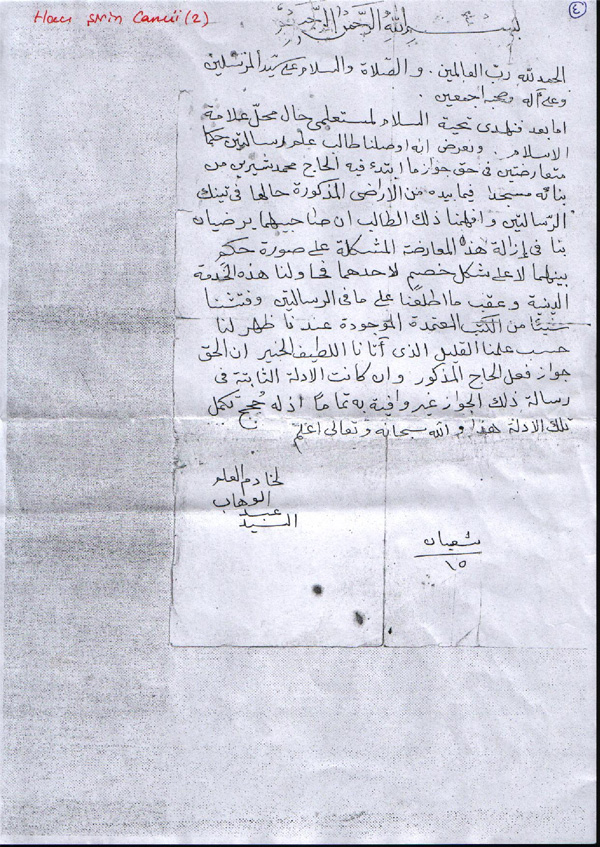 Hacı Şirin Camii (2)
٤
بسم الله الرحمن الرحيم
الحمد لله رب العالمين . والصلاة والسلام على سيد المرسلين
وعلى آله وصحبه اجمعين .
اما بعد فنهدى تحية السلام لمستعلمى حال محل علامة
الاسلام . ونعرض انه اوصلنا طالب علم رسالتين حكما
متعارضتين فى حق جواز ما ابتدء فيه الحاج محمد شيرين من
بنائه مسجدا فيما بيده من الاراضى المذكورة حالها فى تينك
الرسالتين وافهمنا ذلك الطالب ان صاحبيهما يرضيان
بنا فى ازالة هذه المعارضة المشكلة على صورة حكم
بينهما لا على شكل خصم لاحدهما فحاولنا هذه الخدمة
الدينية وعقب ما اطلعنا على ما فى الرسالتين وفتشنا
شيئا من الكتب المعتمدة الموجودة عندنا ظهر لنا
حسب علمنا القليل الذى أتانا اللطيف الخبير ان الحق
جواز فعل الحاج المذكور وان كانت الادلة الثابتة فى
رسالة ذلك الجواز غير وافية به تماما اذ له حجج تكمل
تلك الادلة هذا والله سبحانه وتعالى اعلم
لخادم العلم
السيد عبد الوهاب
شعبان
١٥